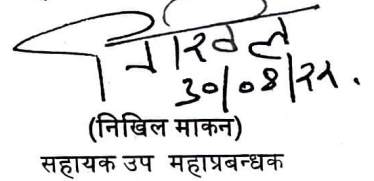 निखिल
30/08/22.
(निखिल माकन)
सहायक उप महाप्रबन्धक